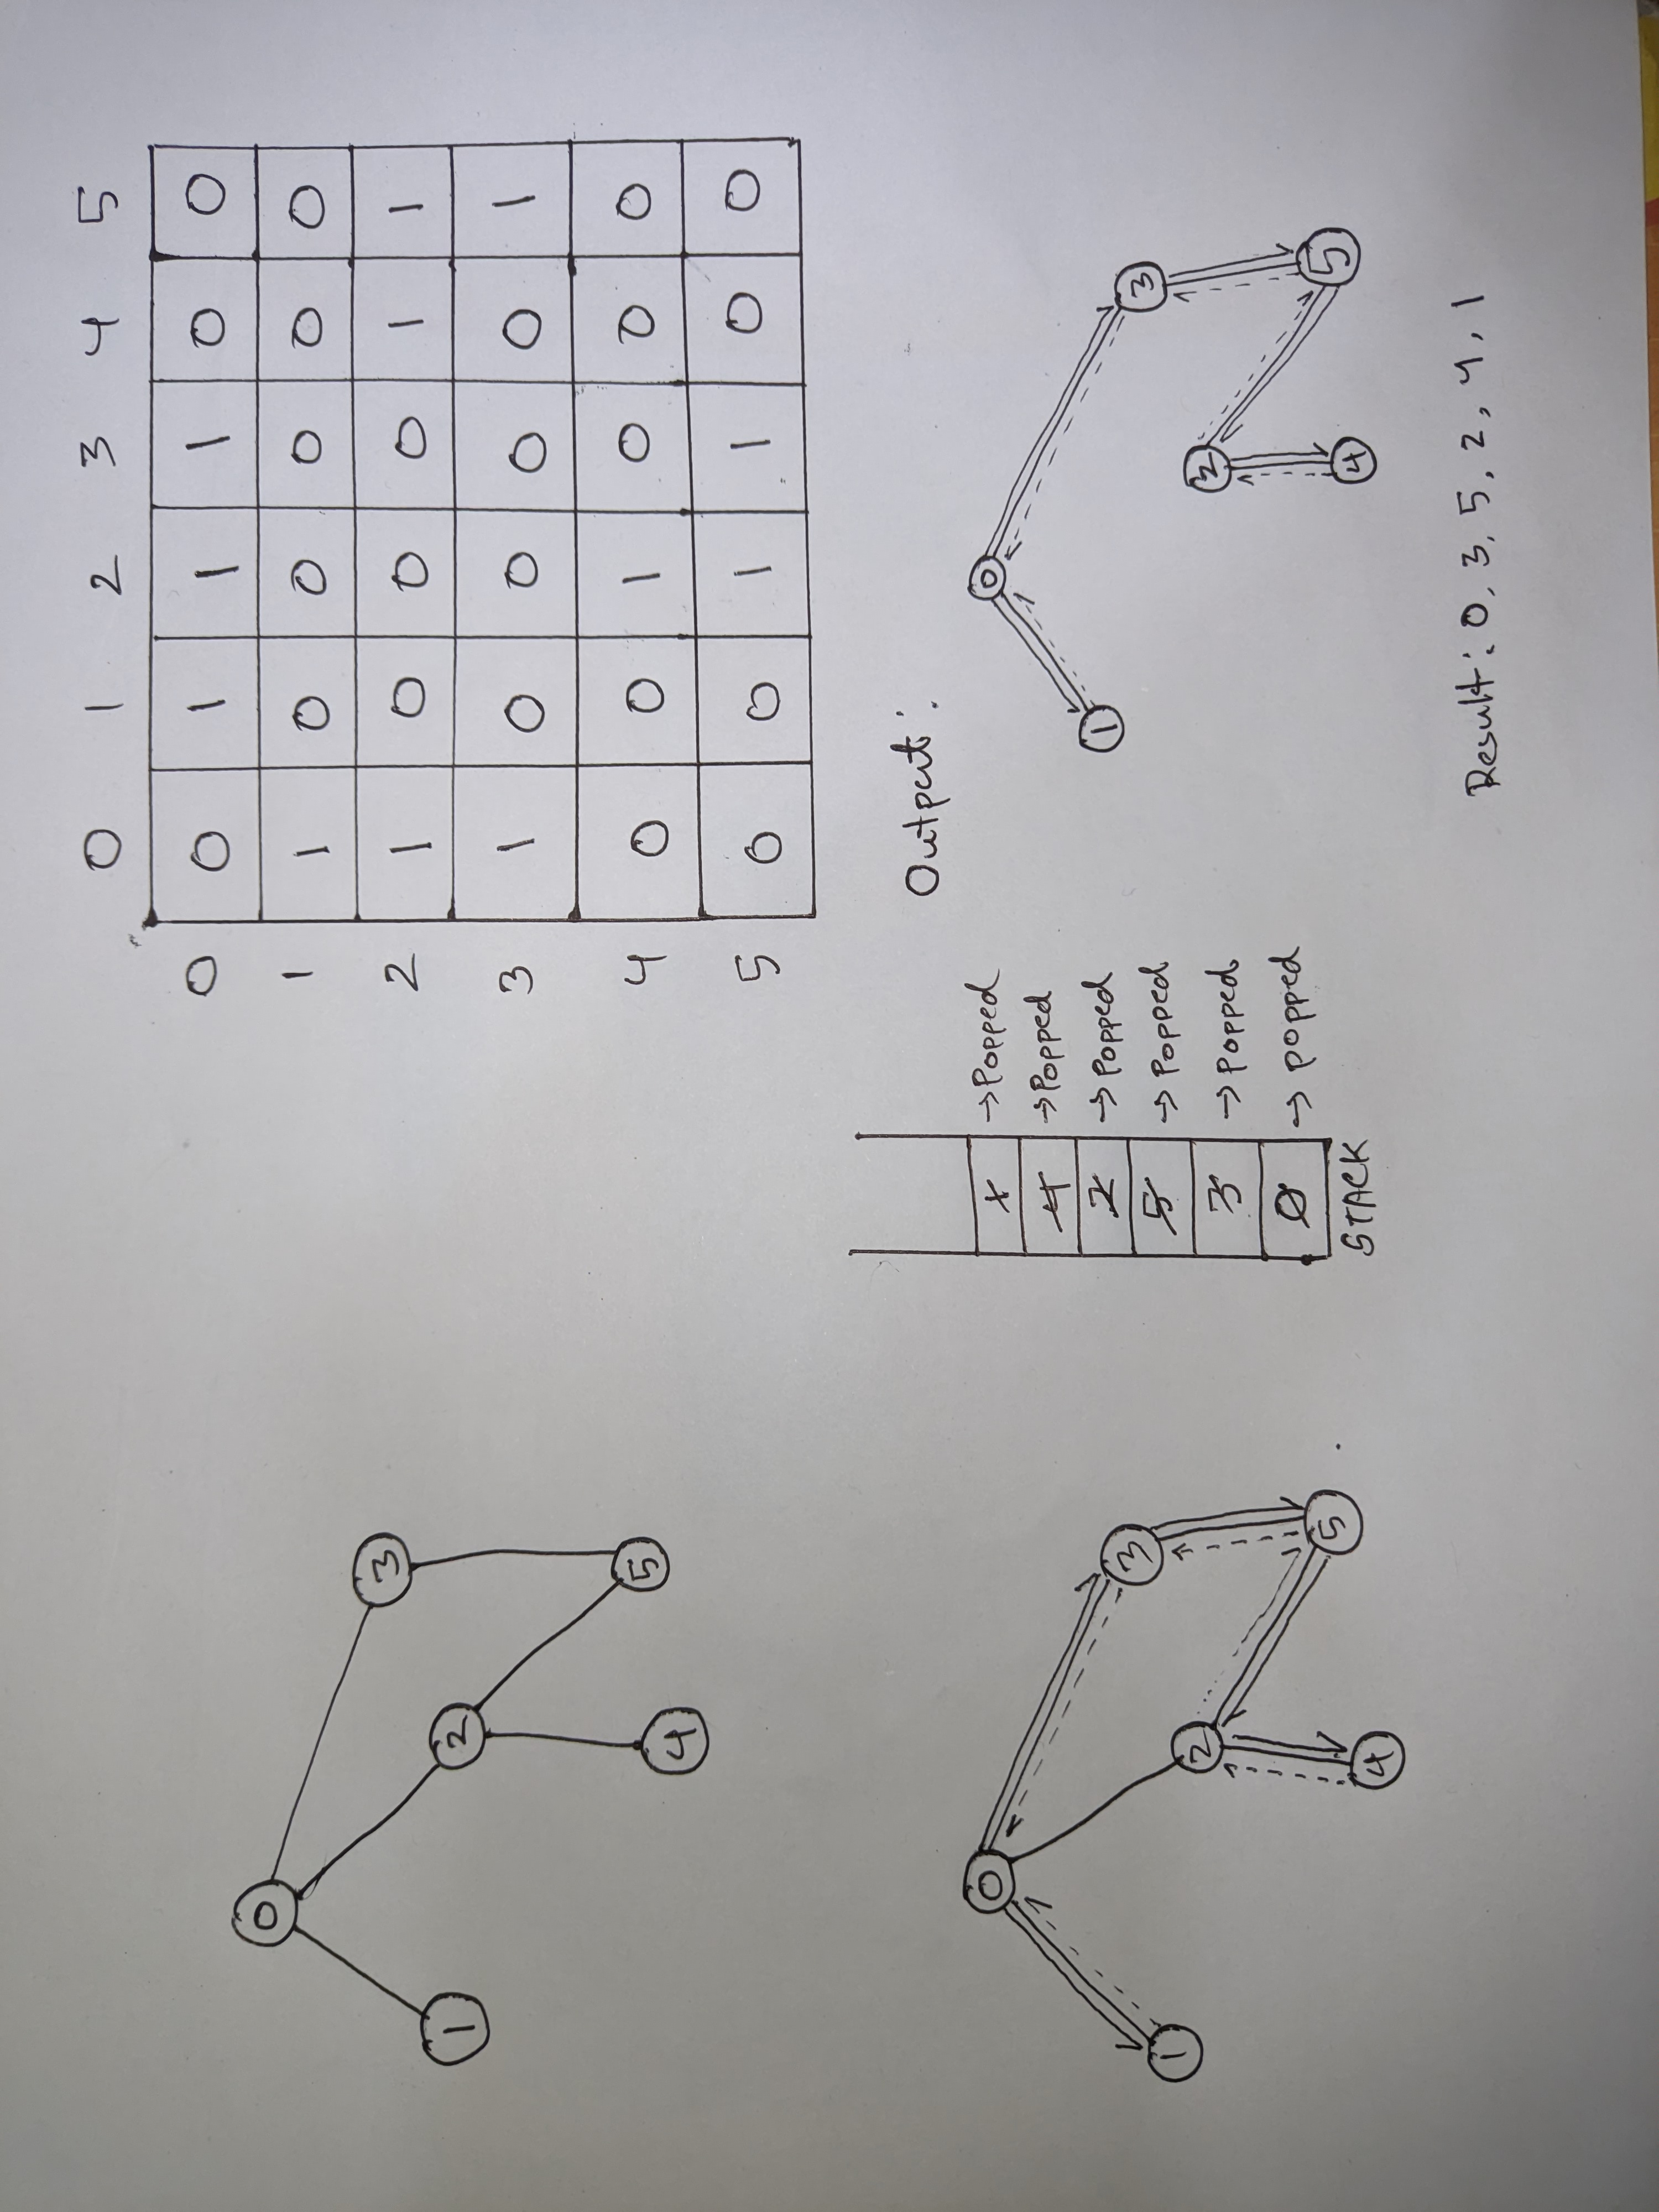 0
1
2
3
4
5
0 1 2 3 4 5
0 0 1 1 1 0 0
1 1 0 0 0 0 0
2 1 0 0 0 1 1
3 1 0 0 0 0 1
4 0 0 1 0 0 0
5 0 0 1 1 0 0
0
1
2
3
4
5
→ Popped
4 → Popped
2 → Popped
5 → Popped
3 → Popped
0 → popped
STACK
Output:
0
1
3
2
4
5
Result: 0, 3, 5, 2, 4, 1